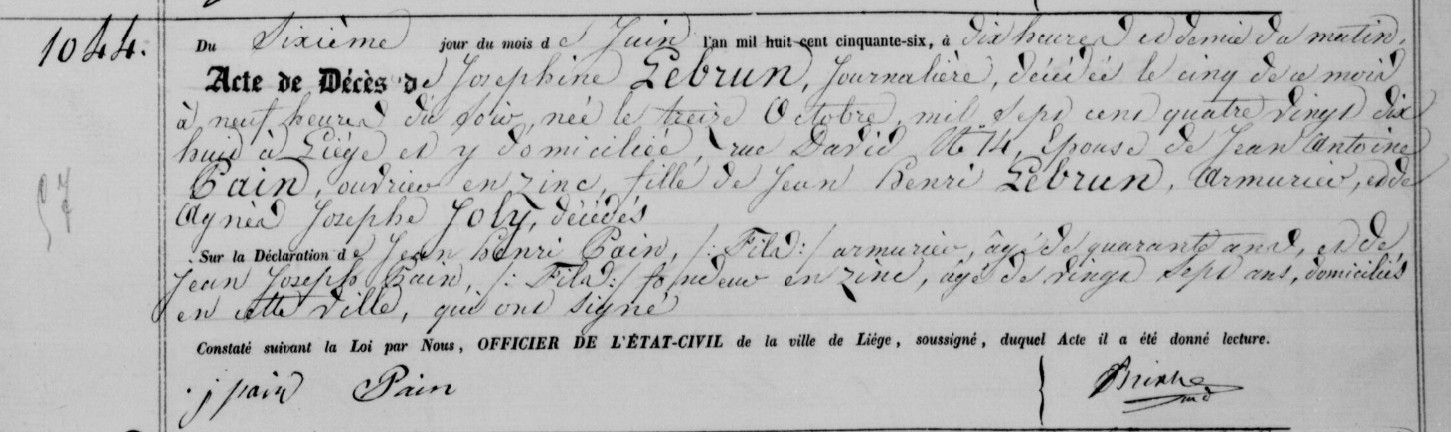 1044.
Du Sixième jour du mois de Juin l'an mil huit cent cinquante-six, à dix heures et demie du matin,
Acte de Décès de Josephine Lebrun, Journalière, décédée le cinq de ce mois
à neuf heures du soir, née le treize Octobre, mil sept cent quatre vingt dix
huit à Liége et y domiciliée, rue David N° 14, Épouse de Jean Antoine
Pain, ouvrier en zinc, fille de Jean Henri Lebrun, Armurier, et de
Agnès Josephe Joly, décédés
Sur la Déclaration de Jean Henri Pain, /: Fils :/ armurier, âgé de quarante ans, et de
Jean Joseph Pain, /: Fils :/ fondeur en zinc, âgé de vingt sept ans, domiciliés
en cette ville, qui ont signé
Constaté suivant la Loi par Nous, OFFICIER DE L'ÉTAT-CIVIL de la ville de Liége, soussigné, duquel Acte il a été donné lecture.
j pain Pain